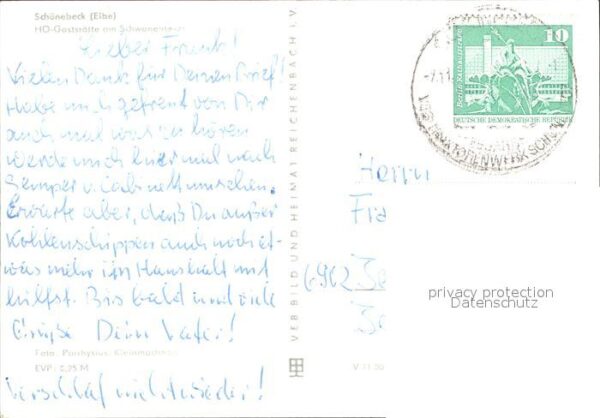 Schönebeck (Elbe)
HO-Gaststätte am Schwanenteich
Lieber Frank!
Vielen Dank für Deinen Brief
Habe mich gefreut von Dir
auch mal was zu hören
werde mich hier mal nach
Semper u. Cabinett umsehen.
Erwarte aber, daß Du außer
Kohlenschippen auch noch et-
was mehr im Haushalt mit
hilfst. Bis bald und viele
Grüße Dein Vater!
Foto: Porphysius, Kleinmachnow
EVP: 0,25 M
Verschlaf nicht wieder!
VEB BILD UND HEIMAT REICHENBACH I. V.
V 11 50
10
BERLIN RATHAUSSTRASSE
DEUTSCHE DEMOKRATISCHE REPUBLIK
VEB TRAKTORENWERK SCHÖNEBECK
Herrn
Fra
6902 Je
privacy protection
Datenschutz